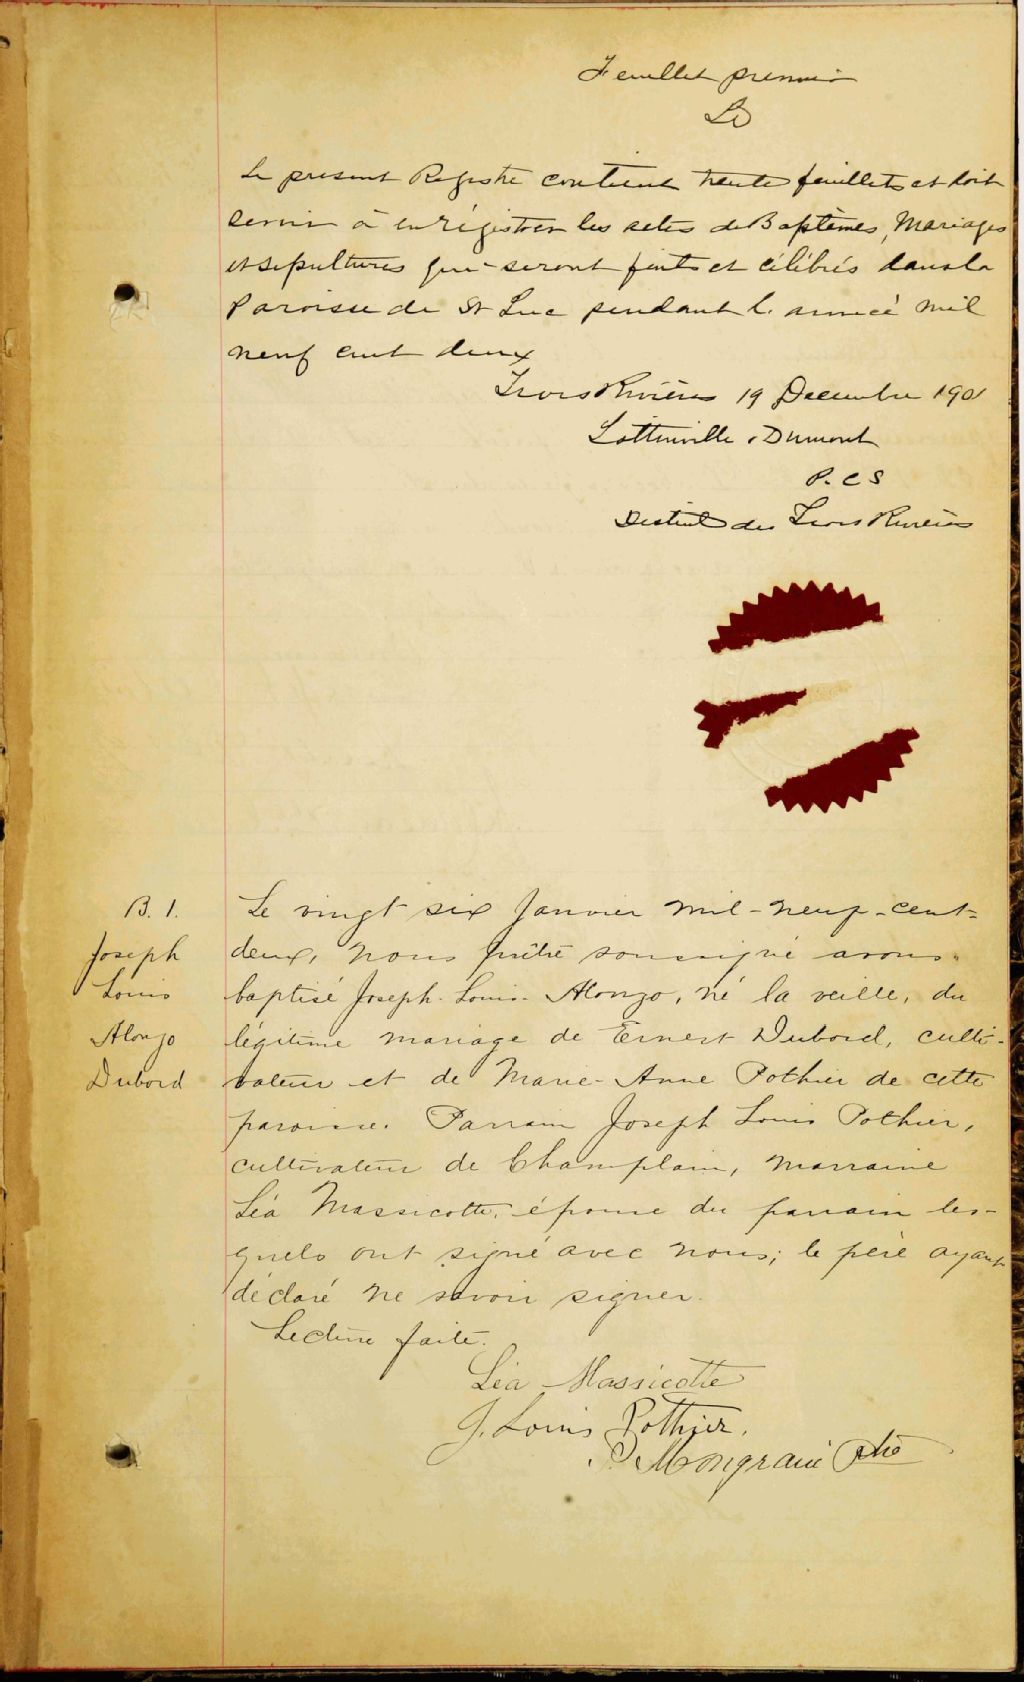 Feuillet premier
LD
Le present Registre contient trente feuillets et doit
servir à enrégistrer les actes de Baptêmes, Mariages
et sepultures qui seront faits et célébrés dans la
Paroisse de St Luc pendant l'année mil
neuf cent deux
Trois Rivières 19 Decembre 1901
Lottinville & Dumont
P. C S
District des Trois Rivières
B. 1.
Joseph
Louis
Alonzo
Dubord
Le vingt six Janvier mil-neuf-cent-
deux, nous prêtre soussigné avons
baptisé Joseph-Louis-Alonzo, né la veille, du
légitime mariage de Ernest Dubord, culti-
vateur et de Marie-Anne Pothier de cette
paroisse. Parrain Joseph Louis Pothier,
cultivateur de Champlain, marraine
Léa Massicotte, épouse du parrain les-
quels ont signé avec nous; le père ayant
déclaré ne savoir signer.
Lecture faite.
Léa Massicotte
J. Louis Pothier.
Mongrain Ptre